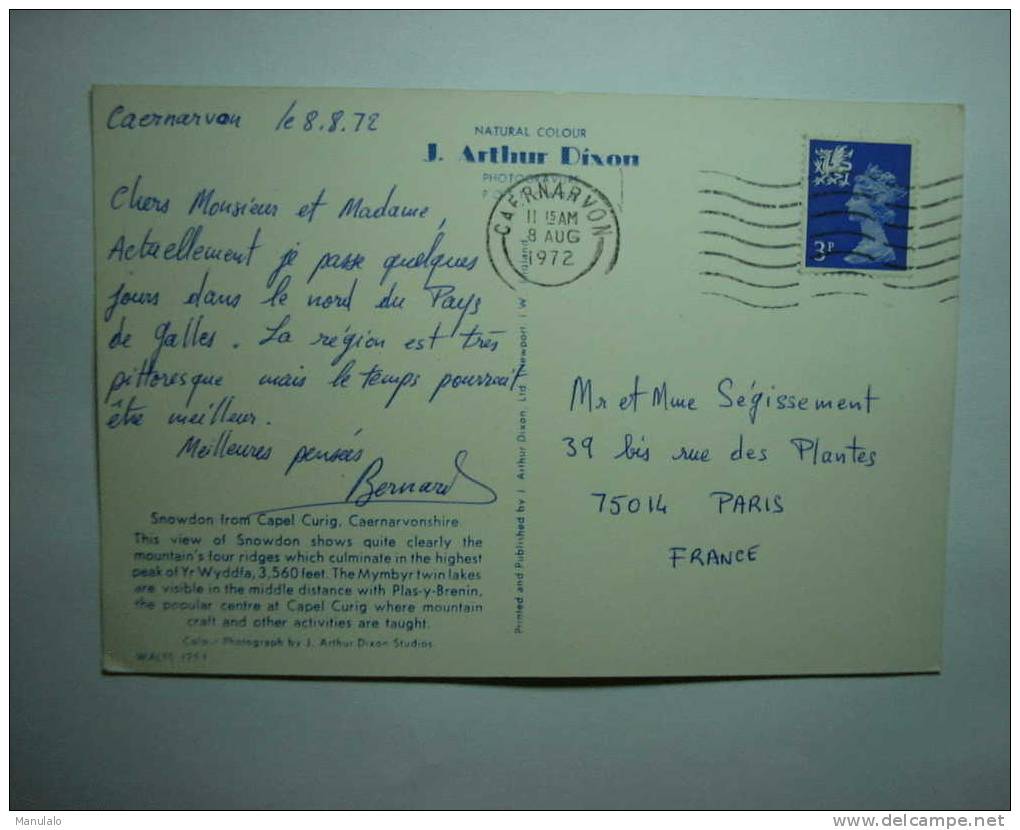 Caernarvon le 8.8.72
Chers Monsieur et Madame,
Actuellement je passe quelques
jours dans le nord du Pays
de Galles. La région est très
pittoresque mais le temps pourrait
être meilleur.
Meilleures pensées
Bernard
Snowdon from Capel Curig, Caernarvonshire
This view of Snowdon shows quite clearly the
mountain's four ridges which culminate in the highest
peak of Yr Wyddfa, 3,560 feet. The Mymbyr twin lakes
are visible in the middle distance with Plas-y-Brenin,
the popular centre at Capel Curig where mountain
craft and other activities are taught.
Colour Photograph by J. Arthur Dixon Studios
WALES
NATURAL COLOUR
J. Arthur Dixon
PHOTOGRAVURE
Printed and Published by J. Arthur Dixon, Ltd. Newport, I W England
CAERNARVON
11 15 AM
8 AUG
1972
3P
Mr et Mme Ségissement
39 bis rue des Plantes
75014 PARIS
FRANCE
Manulalo
http://www.delcampe.net